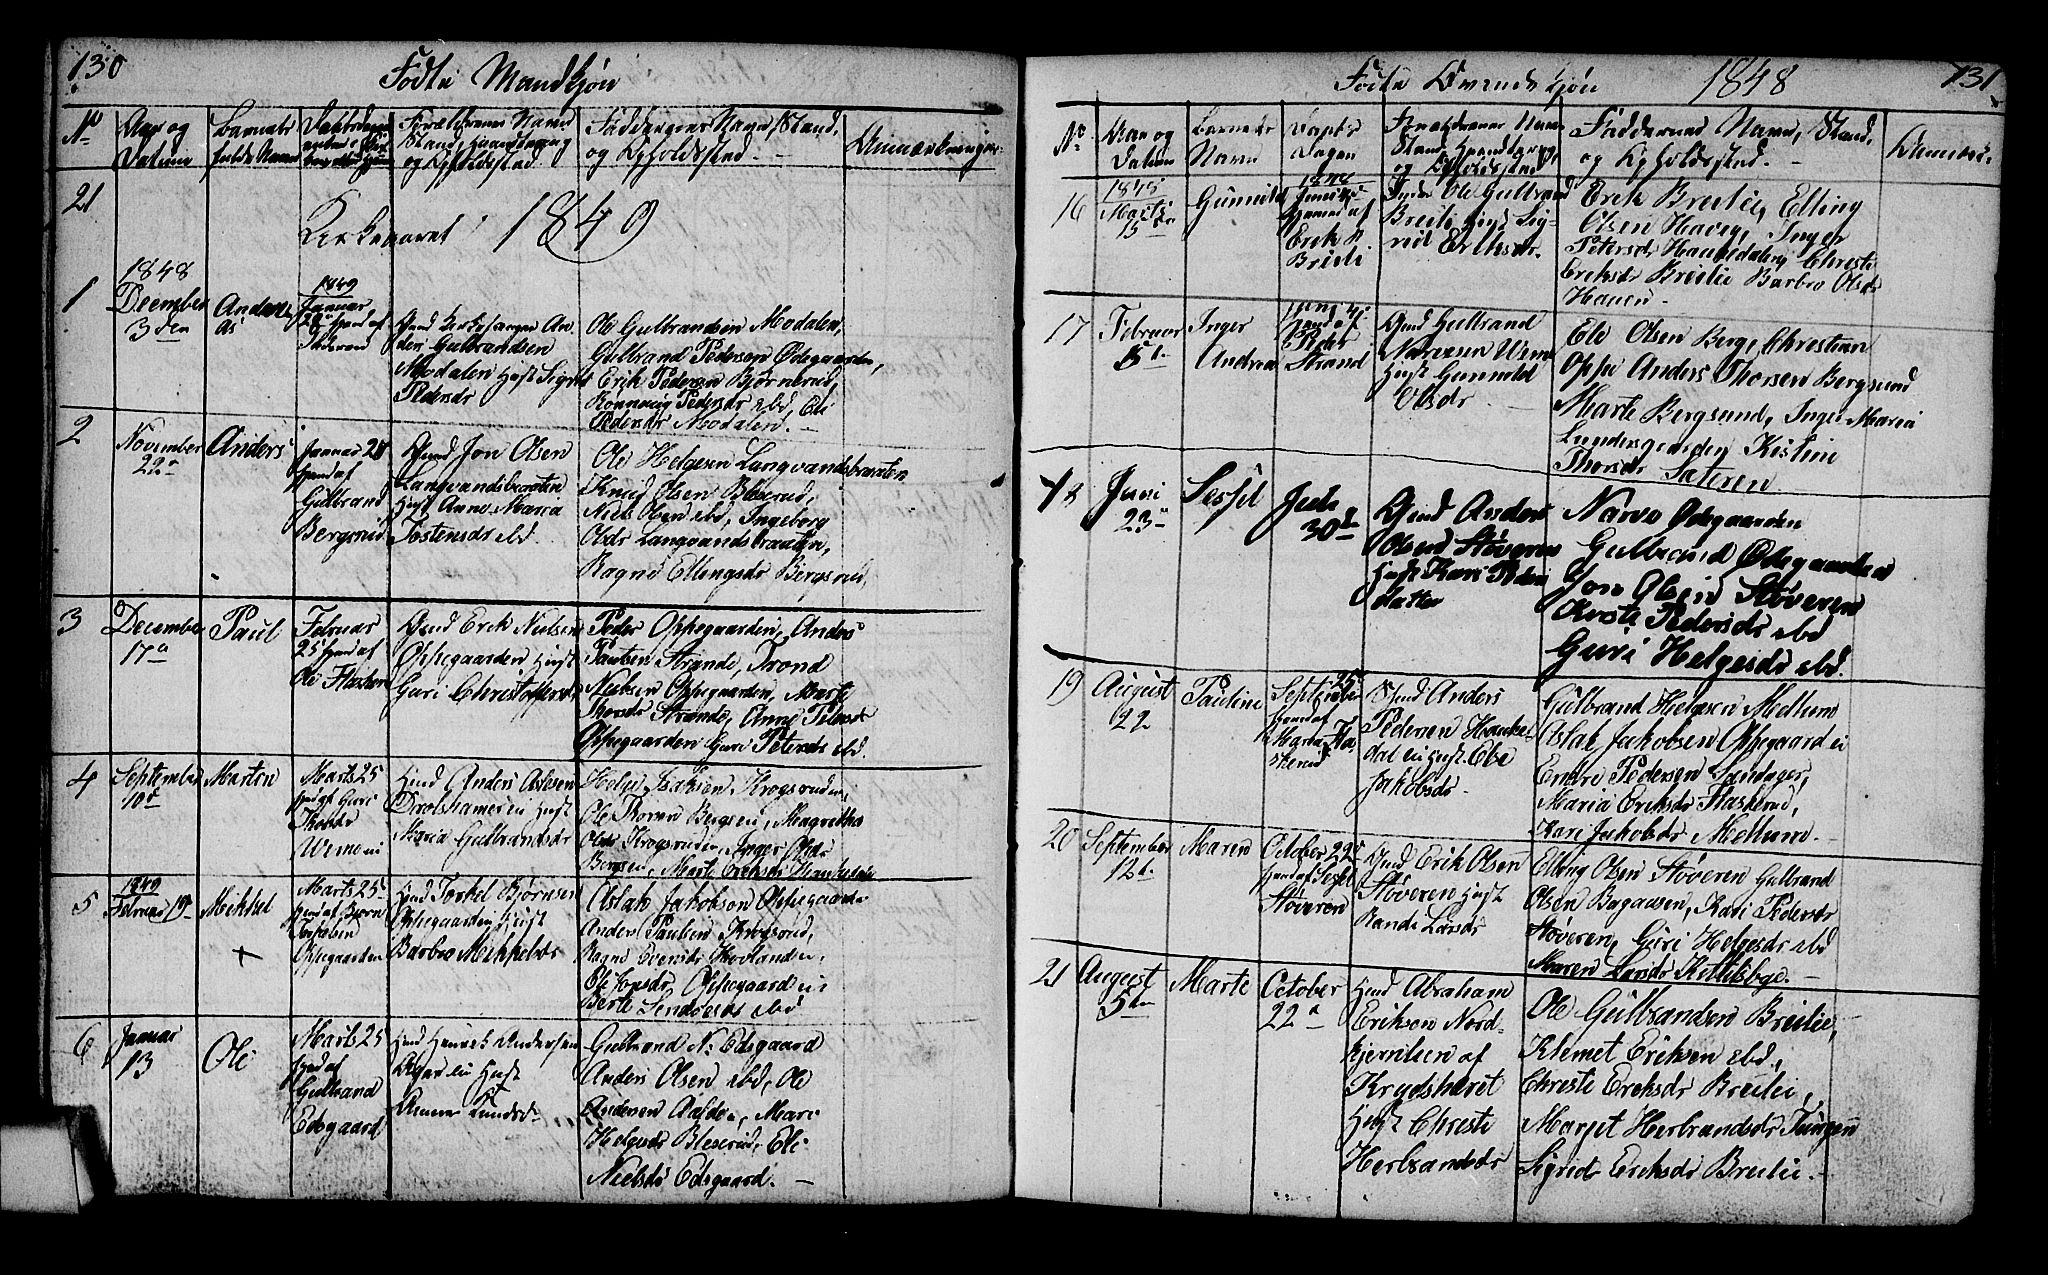 130
Födte Mandkjön
No
Aar og
Datum
Barnets
fulde Navn
Forældrenes Navn
Stand, Haandtering
og Opholdssted
Faddernes Navn, Stand,
og Opholdssted.
Anmærkninger
21
Kirkeaaret 1849
1
1848
December
3den
Andreas
1849
Januar
28 Hand af
Gaard Kirkesanger An-
ders Gulbrandsen
Modalen Hust Sigri
Pedersdr
Ole Gulbrandsen Modalen,
Gulbrand Pedersen Ødegaarden,
Erik Pedersen Björnerud,
Rönnaug Pedersdr ebd, Eli
Pedersdr Modalen. -
2
November
22
Anders
Januar 28
Hand af
Gulbrand
Bergsrud
Gmd Jon Olsen
Langvandsbraaten
Hust Anne Maria
Tostensdr ebd
Ole Helgesen Langvandsbraaten
Knud Olsen Bleserud,
Niels Olsen ebd, Ingeborg
Olsdr Langvandsbraaten,
Ragne Ellingsdr Bergsrud,
3
December
17
Paul
Februar
25 Hand af
Ole Flasken
Gmd Erik Nielsen
Oppegaarden Hust
Guri Christoffersdr
Peder Oppegaarden, Anders
Paulsen Strande, Trond
Nielsen Oppegaarden, Marte
Thorsdr Strande, Anne Pedersdr
Oppegaarden Guri Petersdr ebd.
4
September
10
Morten
Marts 25
Hand af Guri
Thorsdr
Wemeni
Hmd Anders Aslesen
Drolshamerei Hust
Maria Gulbrandsdr
Helge Isaksen Krogsrudei
Ole Thoresen Bergseni, Magretha
Olsdr Krogsrudei, Inger Olsdr
Bergsen, Marte Eriksdr Haukedalen
5
1849
Februar 19
Mikkel
+
Marts 25
Hand af Bjørn
Torkelsen
Oppegaarden
Hmd Torkel Bjørnsen
Oppegaarden, Hust
Barbro Mikkelsdr
Aslak Jakobsen Oppegaard
Anders Paulsen Krogsrud,
Ragne Evensdr Hovlandei,
Oppegaard ei
Berte ebd
6
Januar
13
Ole
Marts 25
Hand af
Gulbrand
Edsgaard
Hmd Henrik Andersen
Agerei Hust
Anne Knudsdr
Gulbrand N: Edsgaard
Anders Olsen ebd, Ole
Andersen Aalde, Mari
Helgesdr Bleserud, Eli
Nielsdr Edsgaard. -
Födte Qvindekjön 1848 131
No
Aar og
Datum
Barnets
Navn
Daabs
Dagen
Forældrenes Navn
Stand Haandtering
og Opholdssted
Faddernes Navn, Stand,
og Opholdssted. -
Anmærk.
16
1848
Marts
15
Gunnild
1848
Hand af
Erik P.
Breili
Ole Gulbrand
Breilie Hust Sig-
rid Eriksdr.
Erik Breilie, Elling
Olsen Havig, Inger
Petersdr Haukedalen, Christi
Eriksdr Breilie Barbro Olsdr
Hauen -
17
Februar
5
Inger
Andrea
Hand af
Peder
Strand
Gmd Gulbrand
Narvesen Weme
Hust Gunnild
Olsdr
Ole Olsen Berg, Christian
Oppe Anders Thorsen Bergsund
Marte Bergsund, Inger Maria
Kistine
Thorsdr Sateren
18
Juni
23
Sessel
Juli
30
Gmd Anders
Olsen Støveren
Hust Kari Peders
datter
Narve Ødegaarden
Gulbrand Ødegaarden
Jon Olsen Støveren
Kirsti Pedersdr ebd
Guri Helgesdr ebd.
19
August
22
Pauline
25
September
Hand af
Maria Fla-
skerud
Gmd Anders
Pedersen Hauke-
dal ei Hust. Ebe
Jakobsdr -
Gulbrand Helgesen Mellum
Aslak Jakobsen Oppegaard ei
Endre Pedersen Sandager,
Maria Eriksdr Flaskerud,
Kari Jakobsdr Mellum -
20
September
12
Maren
October 22
Hand af Sessel
Støveren
Gmd Erik Olsen
Støveren Hust
Randi Larsdr
Elling Olsen Støveren Gulbrand
Olsen Bagaasen, Kari Pedersdr
Støveren, Guri Helgesdr ebd
Maren Larsdr Kittilsbye. -
21
August
5
Marte
October
22
Hmd Abraham
Erikson Nord-
kjernlien af
Krydsherret
Hust Christi
Herbrandsdr
Ole Gulbrandsen Breilie,
Klemet Eriksen ebd,
Christi Eriksdr Breilei,
Margit Herbrandsdr Tungen
Sigrid Eriksdr Breilie -